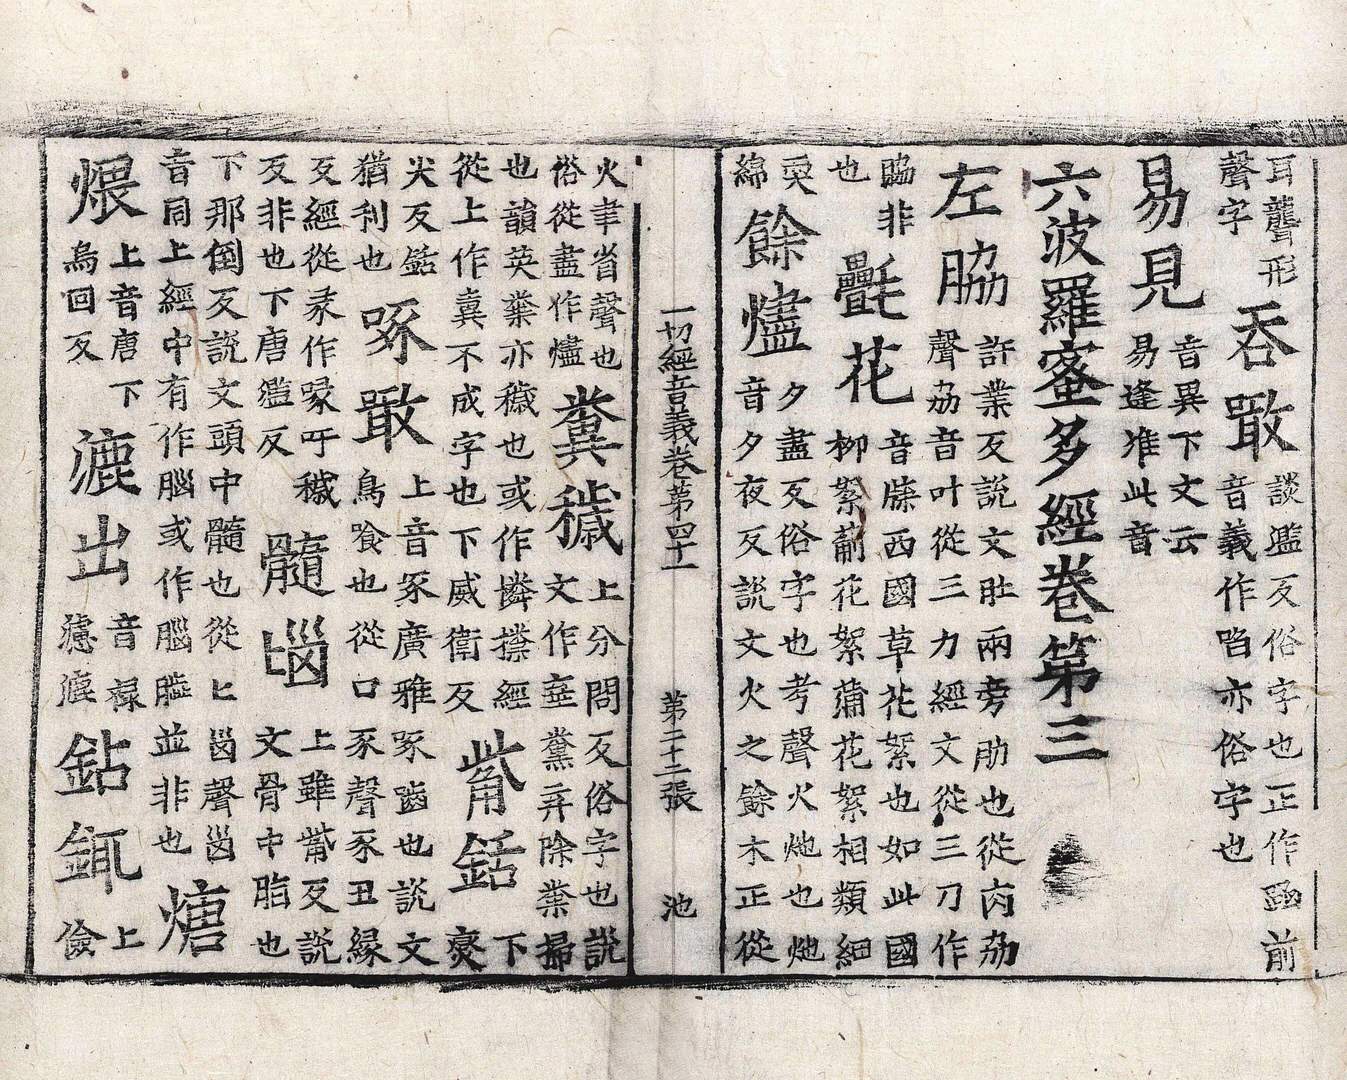 耳聾形
聲字
吞噉
談濫反俗字也正作㽎前
音義作啗亦俗字也
易見
音異下文云
易逢准此音
六波羅蜜多經卷第三
左脇
許業反說文肚兩旁肋也從肉劦
聲劦音叶從三力經文從三刀作
脇非
也
㲲花
音牒西國草花絮也如此國
柳絮蕳花絮蒲花絮相類細
耎
綿
餘燼
夕盡反俗字也考聲火灺也灺
音夕夜反說文火之餘木正從
一切經音義卷第四十一
第二十二張
池
火𦘔省聲也
俗從盡作燼
糞穢
上分問反俗字也說
文作 弃除糞掃
也韻英糞亦穢也或作 經
從上作 不成字也下威衛反
觜銛
下
尖反銛
猶利也
啄噉
上音豕廣雅啄齧也說文
鳥飡也從口豕聲豕丑緣
反經從彖作喙吁穢
反非也下唐濫反
髓𡿺
上雖觜反說
文骨中脂也
下那倒反說文頭中髓也從匕𡿺聲𡿺
音同上經中有作腦或作 並非也
煻
煨
上音唐下
烏回反
漉出
音祿
濾漉
鉆
上
儉